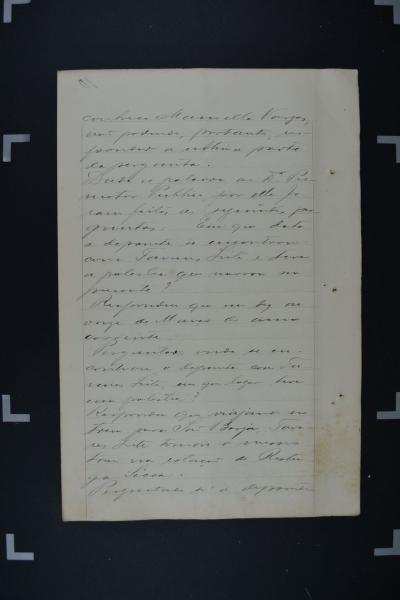 conhece Manuella Vargas,
não podendo, portanto, res-
ponder a ultima parte
da pergunta.
Dada a palavra ao Dr. Pro-
motor Publico, por elle fo-
ram feitas as seguintes per-
guntas: Em que data
o depoente se encontrou
com Tavares Leite e teve
a palestra que narrou no
presente?
Respondeu que em dez ou
onze de Março do anno
corrente.
Perguntado onde se en-
controu o depoente com Ta-
vares Leite, em que lugar teve
essa palestra?
Respondeu que viajava no
trem para São Borja. Tava-
res Leite tomou o mesmo
trem na estação de Restin-
ga Secca.
Perguntado si o depoente